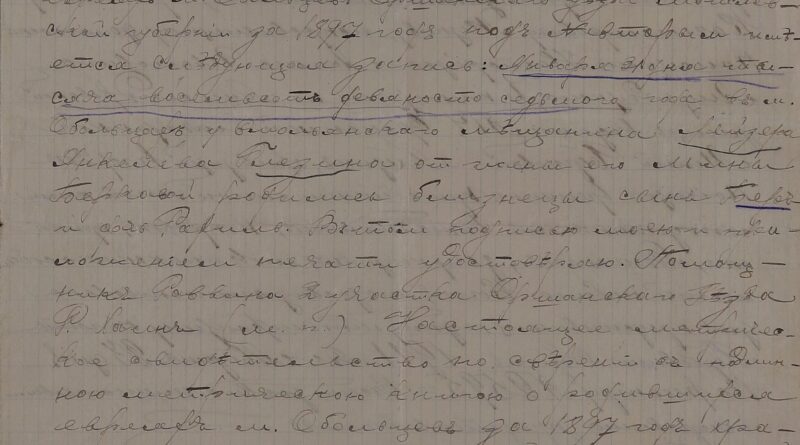 ской губерніи за 1897 годъ подъ № вторымъ имѣ-
ется слѣдующая запись: Января дня ты-
сяча восемьсотъ девяносто седьмого года въ м.
Обольцахъ у смольянскаго мѣщанина Лейзера
Янкелева Глезина отъ жены его Мины
Берковой родились близнецы сынъ Беръ
и дочь Рахиль. Въ томъ подписью моею и при-
ложеніемъ печати удостовѣряю. Помощ-
никъ Раввина 2 участка Оршанскаго уѣзда
Р. Хасинъ (м. п.) Настоящее метричес-
кое свидѣтельство по свѣреніи съ подлин-
ною метрическою книгою о родившихся
евреяхъ м. Обольцевъ за 1897 годъ хра-